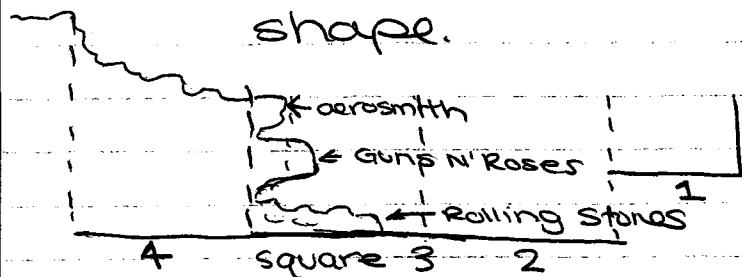 shape.
aerosmith
Guns N' Roses
1
Rolling Stones
4 square 3 2